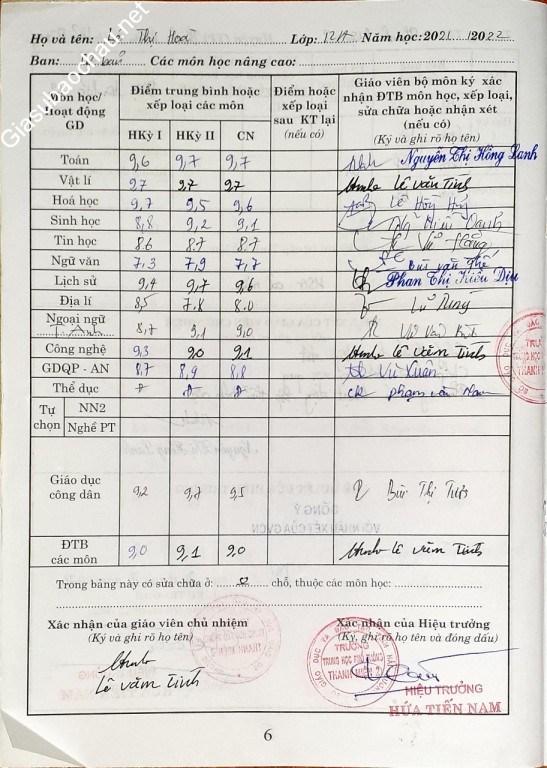 Giasubaochau.net
Họ và tên: Thị Hoài Lớp: 12A Năm học: 2021 / 2022
Ban: Các môn học nâng cao:
Môn học/ Hoạt động GD
Điểm trung bình hoặc xếp loại các môn
HKỳ I HKỳ II CN
Điểm hoặc xếp loại sau KT lại (nếu có)
Giáo viên bộ môn ký xác nhận ĐTB môn học, xếp loại, sửa chữa hoặc nhận xét (nếu có)
(Ký và ghi rõ họ tên)
Toán 9,6 9,7 9,7 Nguyễn Thị Hồng Lanh
Vật lí 9,7 9,7 9,7 Lê Văn Tình
Hoá học 9,7 9,5 9,6 Lê Hồng
Sinh học 8,8 9,2 9,1
Tin học 8.6 8.7 8.7
Ngữ văn 7,3 7,9 7,7 Bùi Văn
Lịch sử 9,4 9,7 9,6 Phan Thị Kiều Dịu
Địa lí 8,5 7,8 8.0
Ngoại ngữ T. Anh 8,7 9,1 9,0
Công nghệ 9,3 9,0 9,1 Lê Văn Tình
GDQP - AN 8,7 8,9 8,8 Vũ Xuân
Thể dục Đ Đ Đ Phạm Văn Nam
Tự chọn NN2
Nghề PT
Giáo dục công dân 9,2 9,7 9,5 Bùi Thị
ĐTB các môn 9,0 9,1 9,0 Lê Văn Tình
Trong bảng này có sửa chữa ở: 0 chỗ, thuộc các môn học:
Xác nhận của giáo viên chủ nhiệm
(Ký và ghi rõ họ tên)
Lê Văn Tình
Xác nhận của Hiệu trưởng
(Ký, ghi rõ họ tên và đóng dấu)
TRƯỜNG
TRUNG HỌC PHỔ THÔNG
THANH MIỆN
HIỆU TRƯỞNG
HỨA TIẾN NAM
6